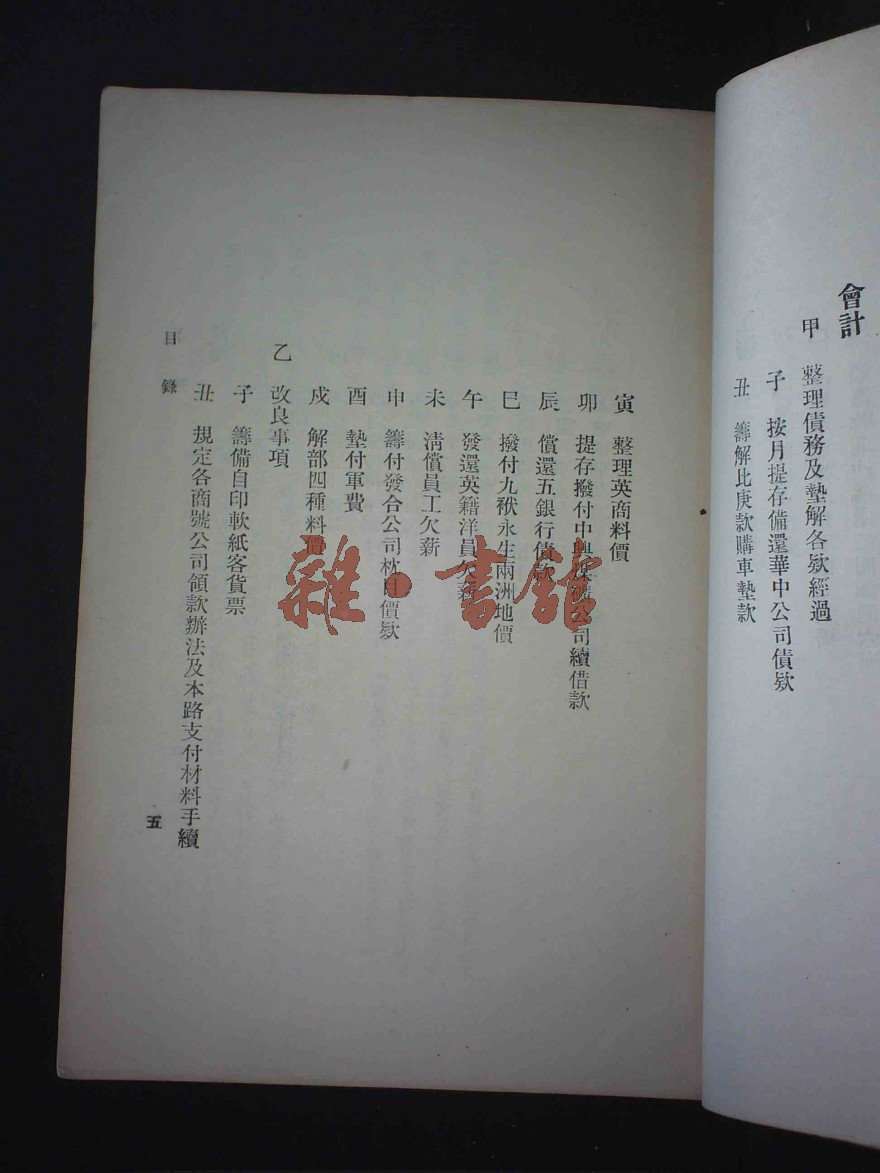 會計
甲　整理債務及墊解各欵經過
子　按月提存備還華中公司債欵
丑　籌解比庚款購車墊款
寅　整理英商料價
卯　提存撥付中興煤礦公司續借款
辰　償還五銀行債款
巳　撥付九袱永生兩洲地價
午　發還英籍洋員欠薪
未　清償員工欠薪
申　籌付發合公司枕木價欵
酉　墊付軍費
戍　解部四種料價
乙　改良事項
子　籌備自印軟紙客貨票
丑　規定各商號公司領款辦法及本路支付材料手續
目錄
五
雜·書館